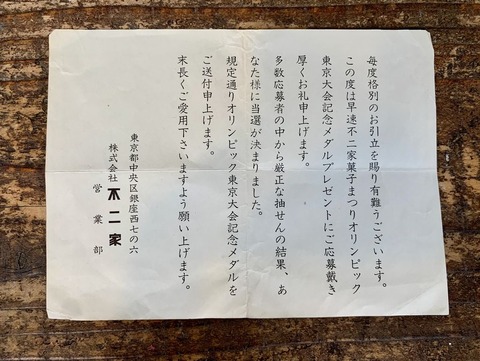 毎度格別のお引立を賜り有難うございます。
この度は早速不二家菓子まつりオリンピック
東京大会記念メダルプレゼントにご応募戴き
厚くお礼申上げます。
多数応募者の中から厳正な抽せんの結果、あ
なた様に当選が決まりました。
規定通りオリンピック東京大会記念メダルを
ご送付申上げます。
末長くご愛用下さいますよう願い上げます。
東京都中央区銀座西七の六
株式会社 不二家
営業部